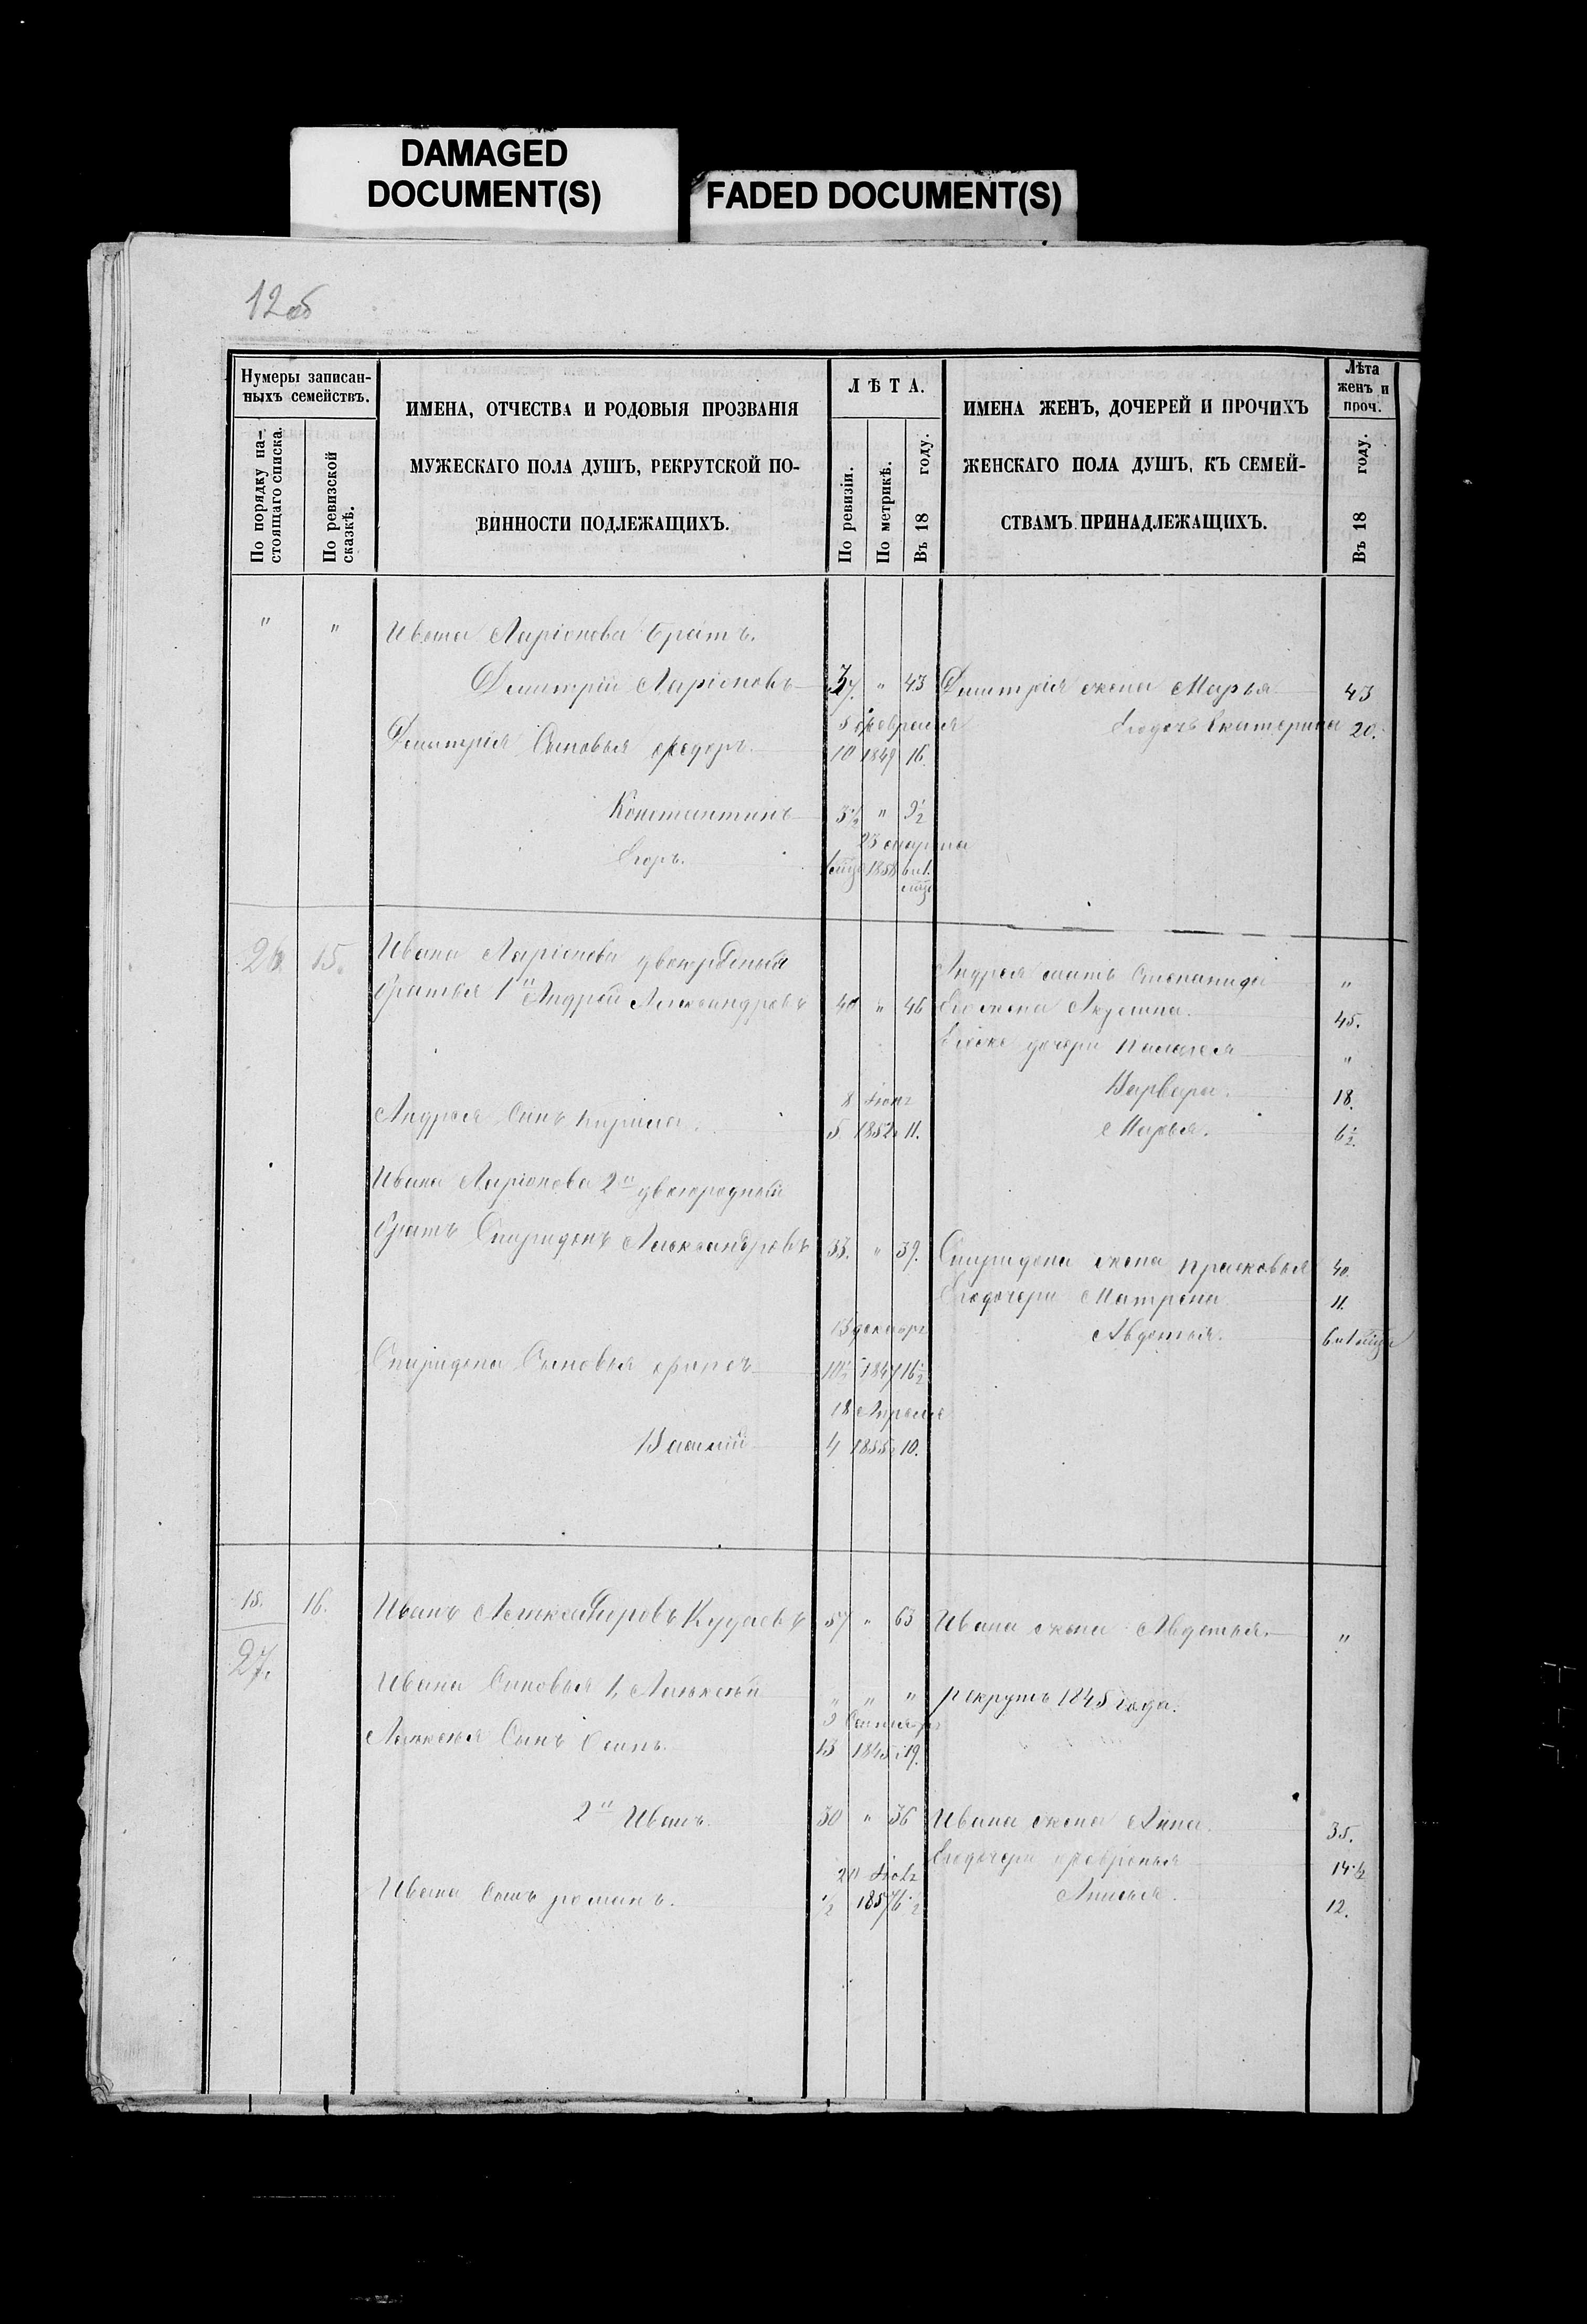 DAMAGED
DOCUMENT(S)
FADED DOCUMENT(S)
12об
Нумеры записан-
ныхъ семействъ.
По порядку на-
стоящаго списка.
По ревизской
сказкѣ.
ИМЕНА, ОТЧЕСТВА И РОДОВЫЯ ПРОЗВАНІЯ
МУЖЕСКАГО ПОЛА ДУШЪ, РЕКРУТСКОЙ ПО-
ВИННОСТИ ПОДЛЕЖАЩИХЪ.
ЛѢТА.
По ревизіи.
По метрикѣ.
Въ 18 году.
ИМЕНА ЖЕНЪ, ДОЧЕРЕЙ И ПРОЧИХЪ
ЖЕНСКАГО ПОЛА ДУШЪ, КЪ СЕМЕЙ-
СТВАМЪ ПРИНАДЛЕЖАЩИХЪ.
Лѣта
женъ и
проч.
Въ 18 году.
" " Ивана Ларіонова братъ.
Дмитрій Ларіоновъ 37. " 43 Дмитрія жена Марья 43
5 февраля Егодочь Екатерина 20.
Дмитрія Сыновья Федоръ 10 1849 16.
Константинъ 3½ " 9½
23 марта
Егоръ. 1 мца 1858 6 и 1. мца
26. 15. Ивана Ларіонова двоюродный
Андрея мать Степанида "
братья 1й Андрей Александровъ 40 " 46 Его жена Акулина. 45.
Егоже дочери Палагея "
8 Іюня Варвара. 18.
Андрея Сынъ Кирила. 5. 1852. 11. Марья. 6½
Ивана Ларіонова 2й двоюродный
братъ Спиридонъ Александровъ 33. " 39. Спиридона жена Прасковья 40.
Егодочери Матрена 11.
13 декабря Авдотья. 6 и 1 мца
Спиридона Сыновья 10½ 1847 16½
18 Апреля
Василій 4 1855. 10.
15. 16. Иванъ Александровъ Кудаевъ 57 " 63 Ивана жена Авдотья. "
27.
Ивана Сыновья 1, Алексей " " " рекрутъ 1845 года.
Сентября
Алексея Сынъ Осипъ. 13 1845. 19.
2й Иванъ. 30 " 36 Ивана жена Анна. 35.
20 Егодочери Февронья 14½
Ивана Сынъ романъ. ½ 1857 6½ Анисья. 12.